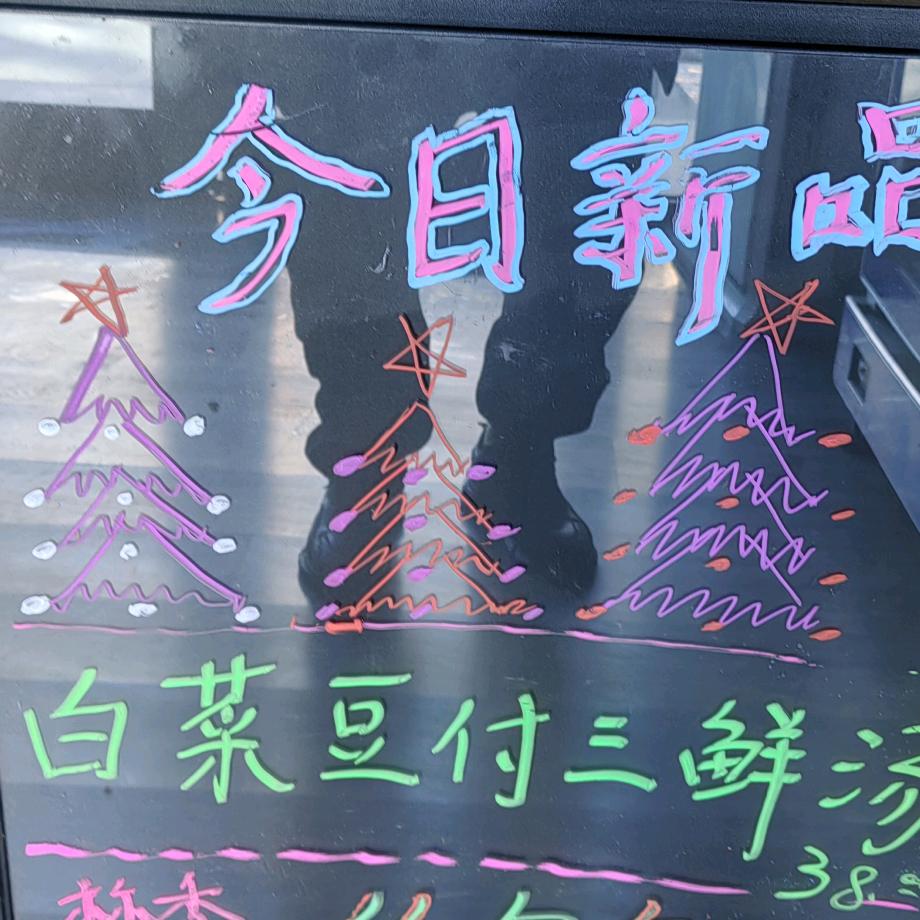 今日新品
白菜豆付三鲜汤
38.